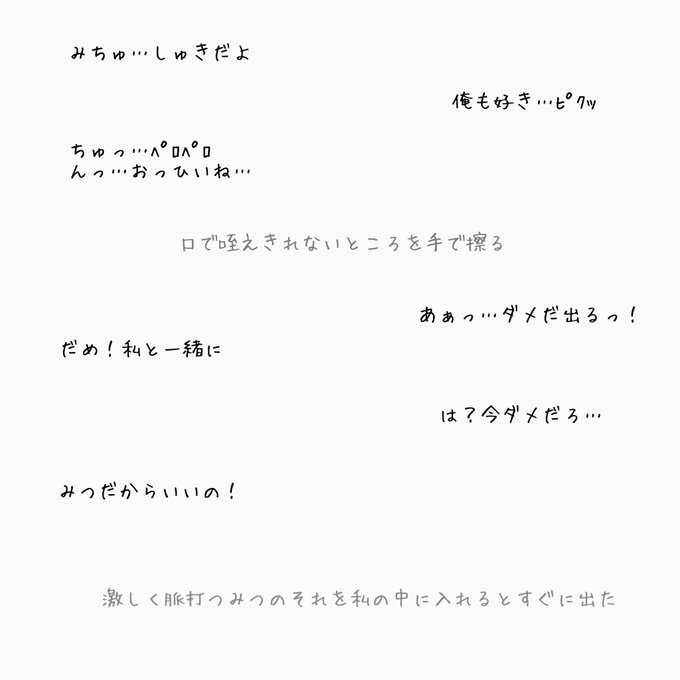 みちゅ…しゅきだよ
俺も好き…ﾋﾟｸｯ
ちゅっ…ﾍﾟﾛﾍﾟﾛ
んっ…おっひいね…
口で咥えきれないところを手で擦る
あぁっ…ダメだ出るっ！
だめ！私と一緒に
は？今ダメだろ…
みつだからいいの！
激しく脈打つみつのそれを私の中に入れるとすぐに出た